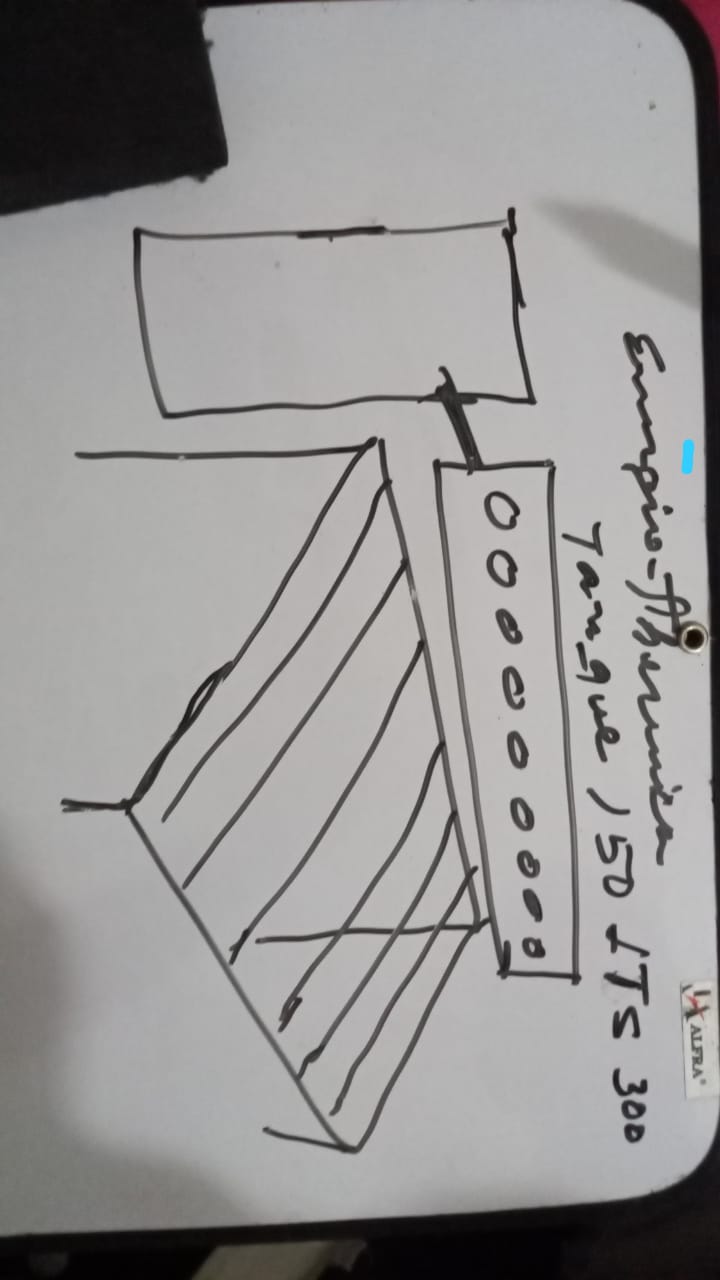 ALFRA®
Thermica
Tanque 150 LTS 300